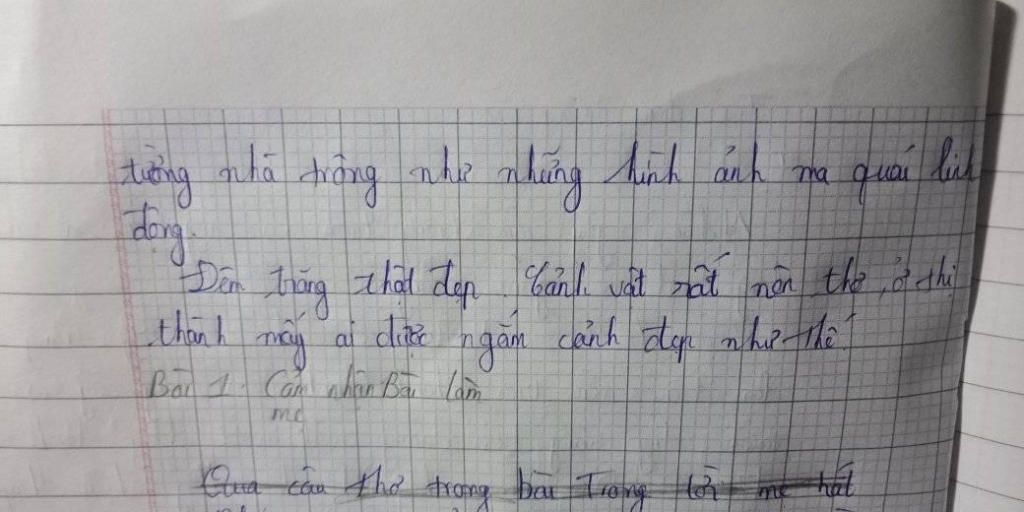 tường nhà trông như những hình ảnh ma quái linh
động.
Đêm trăng thật đẹp. Cảnh vật rất nên thơ, ở thị
thành mấy ai được ngắm cảnh đẹp như thế.
Bài 1: Cảm nhận Bài làm
mẹ
Qua câu thơ trong bài Trong lời mẹ hát